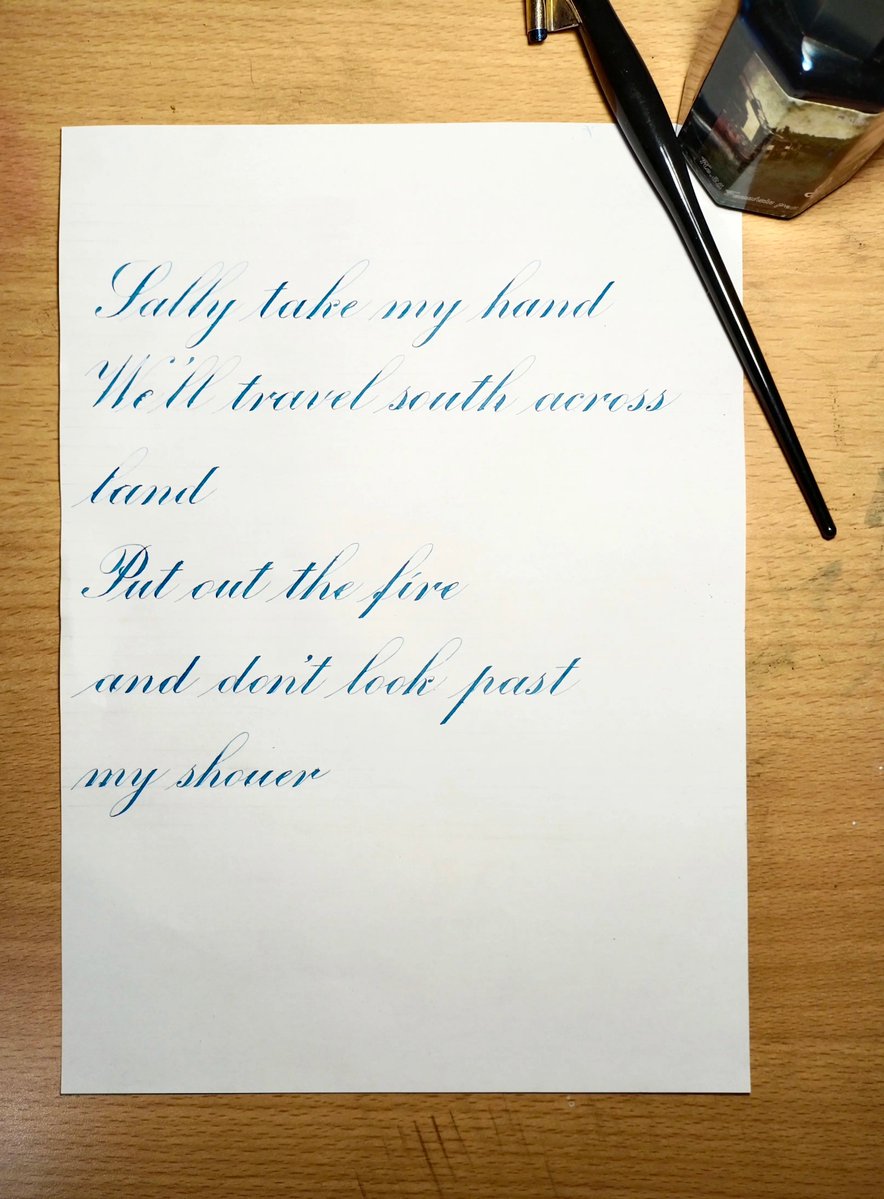 Sally take my hand
We'll travel south across
land
Put out the fire
and don't look past
my shouer